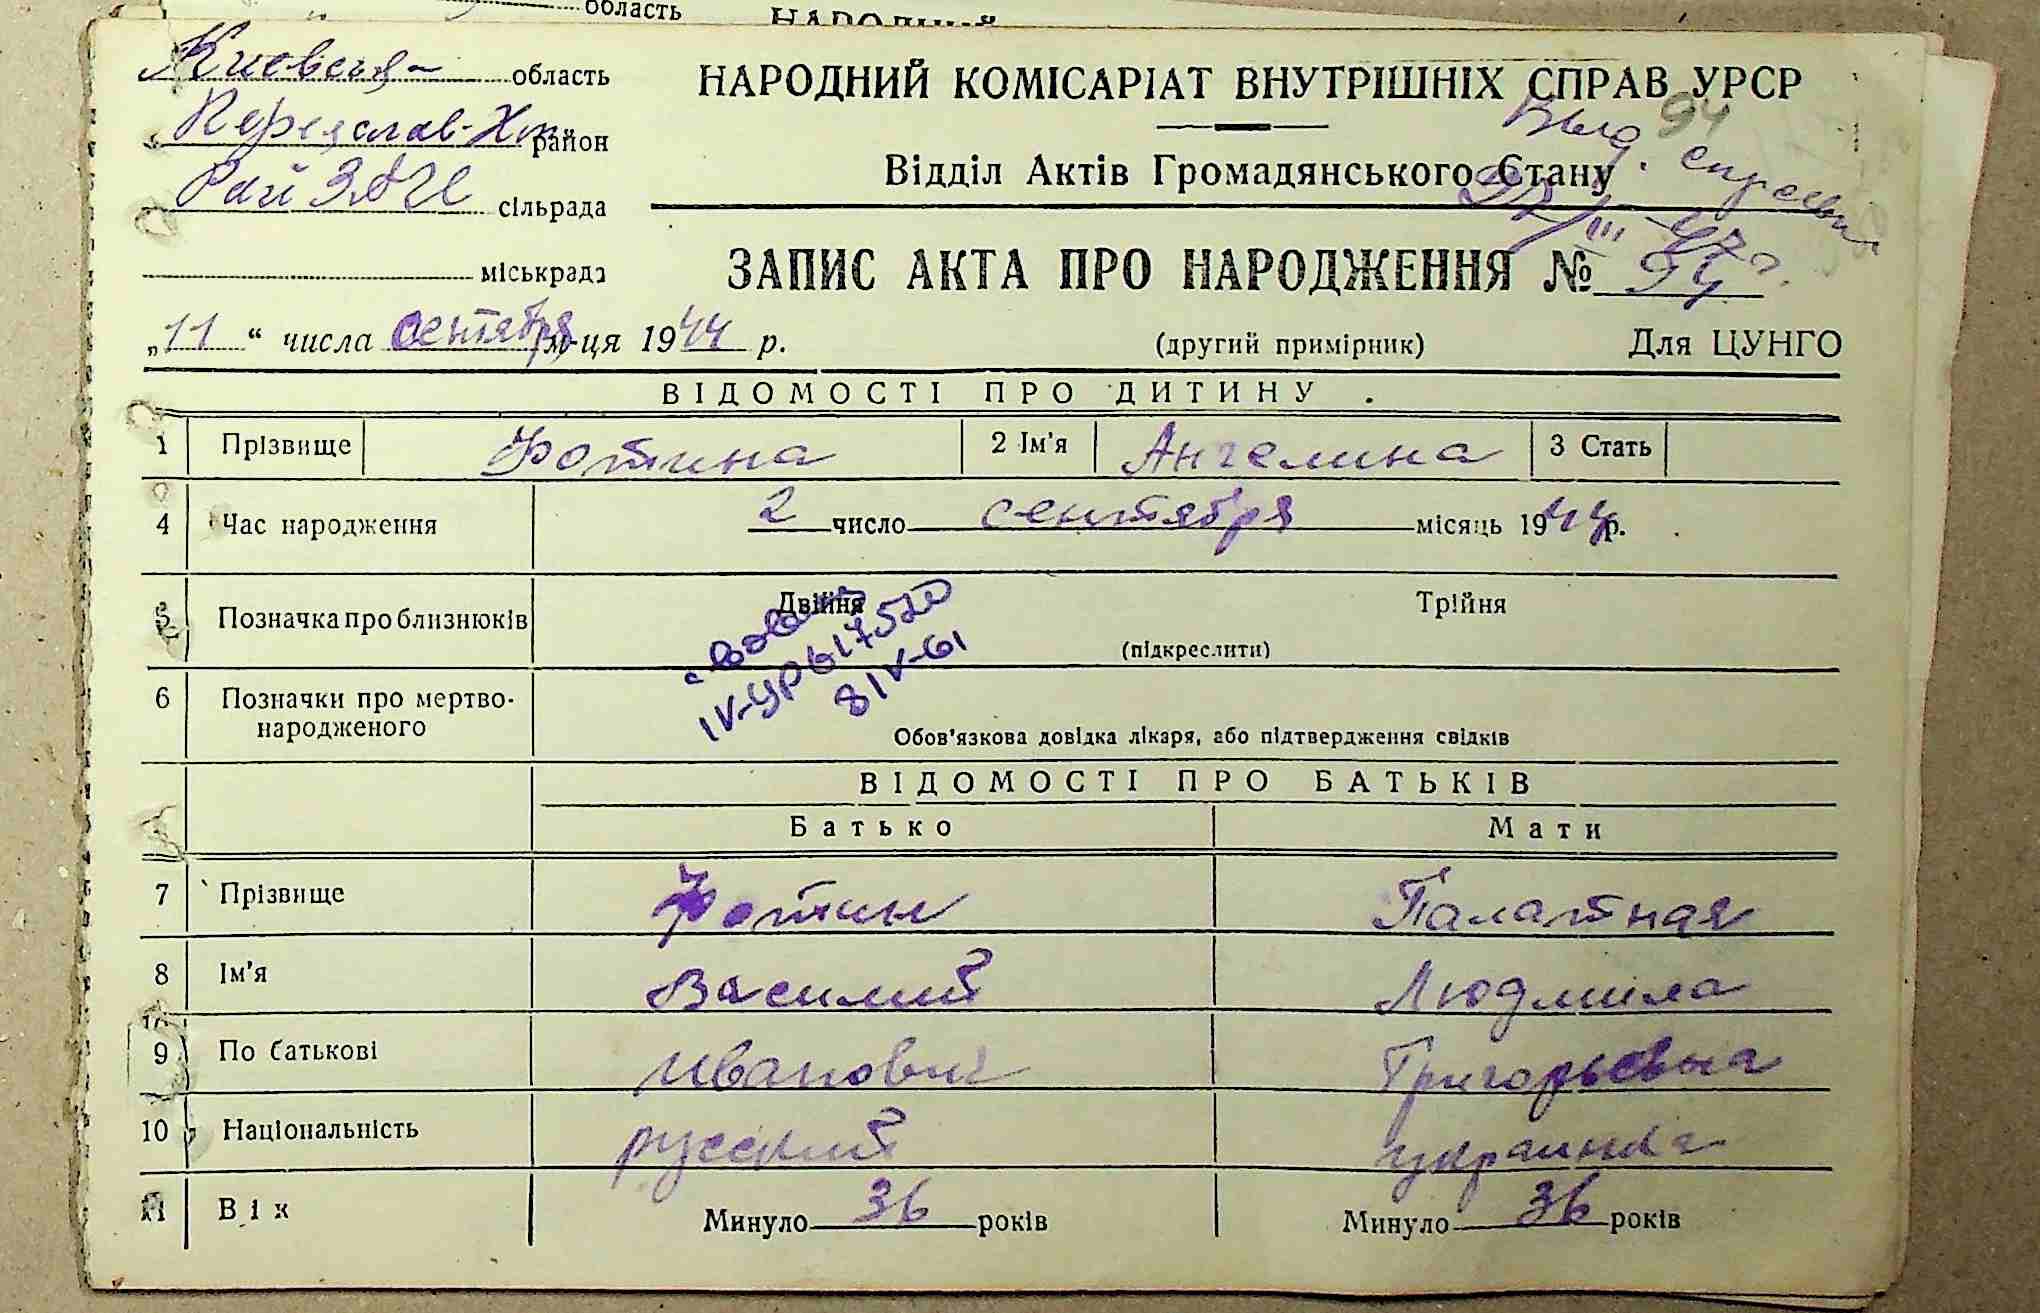 область НАРОДНИЙ
Киевская область
Переяслав-Хм район
Рай ЗАГС сільрада
міськрада
НАРОДНИЙ КОМІСАРІАТ ВНУТРІШНІХ СПРАВ УРСР
94
Відділ Актів Громадянського Стану
Выд. справка
III-47г.
ЗАПИС АКТА ПРО НАРОДЖЕННЯ № 94
„11“ числа сентября м-ця 1944 р.
(другий примірник) Для ЦУНГО
ВІДОМОСТІ ПРО ДИТИНУ
1 Прізвище Фотина 2 Ім'я Ангелина 3 Стать
4 Час народження 2 число сентября місяць 1944 р.
5 Позначка про близнюків Двійня Трійня
(підкреслити)
IV-УР 617520
8 IV-61
6 Позначки про мертво-
народженого
Обов'язкова довідка лікаря, або підтвердження свідків
ВІДОМОСТІ ПРО БАТЬКІВ
Батько Мати
7 Прізвище Фотин Палатная
8 Ім'я Василий Людмила
9 По батькові Иванович Григорьевна
10 Національність русский украинка
11 Вік Минуло 36 років Минуло 36 років